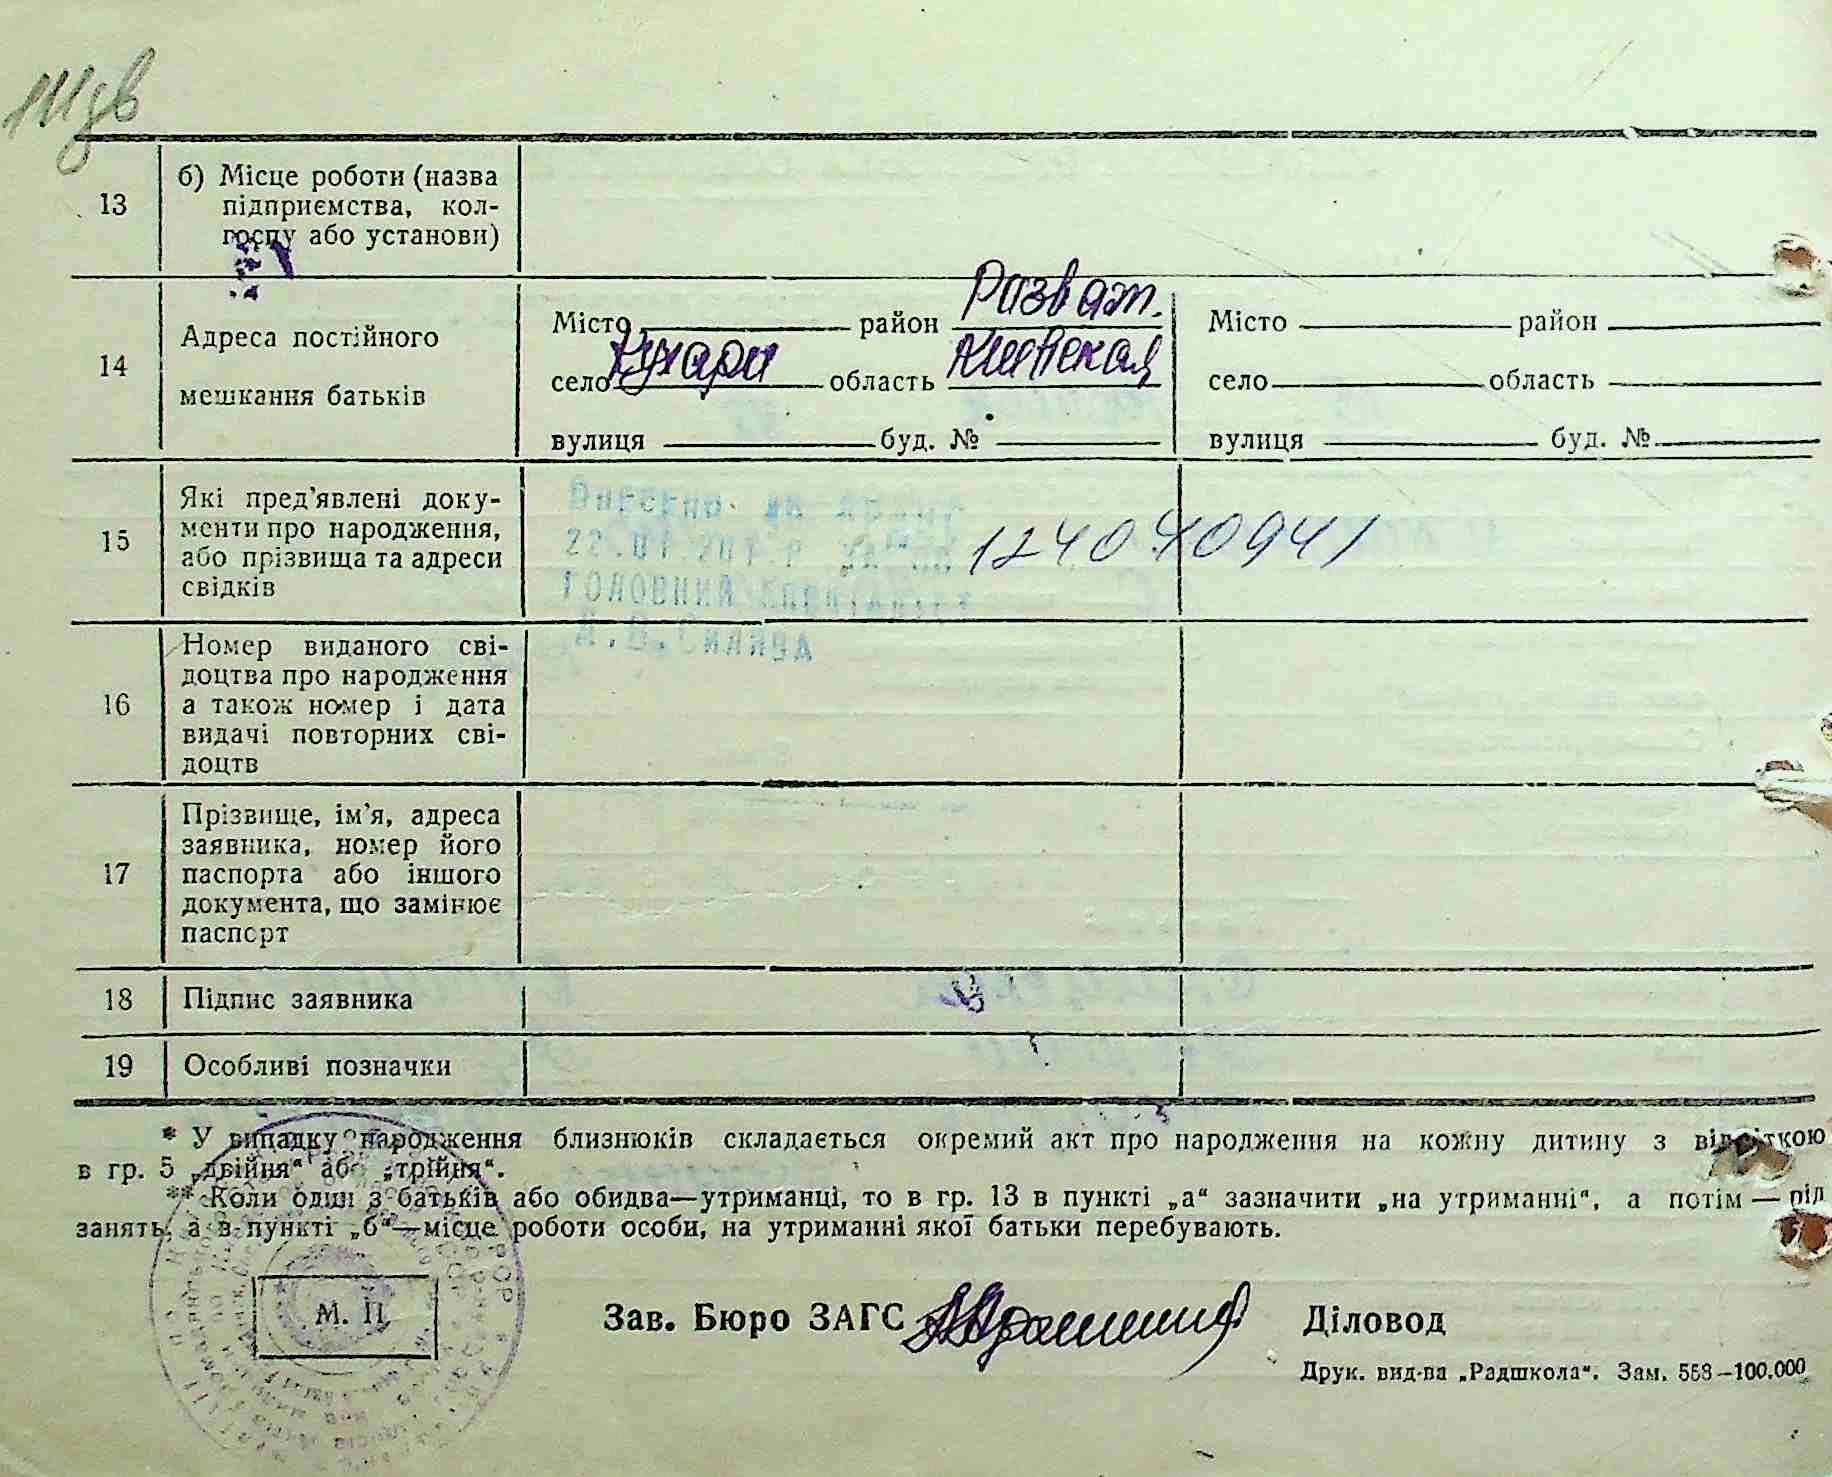 13
б) Місце роботи (назва
підприємства, кол-
госпу або установи)
14
Адреса постійного
мешкання батьків
Місто район Розваж.
село Кухари область Киевская
вулиця буд. №
Місто район
село область
вулиця буд. №
15
Які пред'явлені доку-
менти про народження,
або прізвища та адреси
свідків
Внесено до
22.01.
124070941
Головний спеціаліст
16
Номер виданого сві-
доцтва про народження
а також номер і дата
видачі повторних сві-
доцтв
17
Прізвище, ім'я, адреса
заявника, номер його
паспорта або іншого
документа, що замінює
паспорт
18
Підпис заявника
19
Особливі позначки
* У випадку народження близнюків складається окремий акт про народження на кожну дитину з відміткою
в гр. 5 „двійня“ або „трійня“.
** Коли один з батьків або обидва—утриманці, то в гр. 13 в пункті „а“ зазначити „на утриманні“, а потім — рід
занять, а в пункті „б“—місце роботи особи, на утриманні якої батьки перебувають.
М. П.
Зав. Бюро ЗАГС
Діловод
Друк. вид-ва „Радшкола“. Зам. 568—100.000